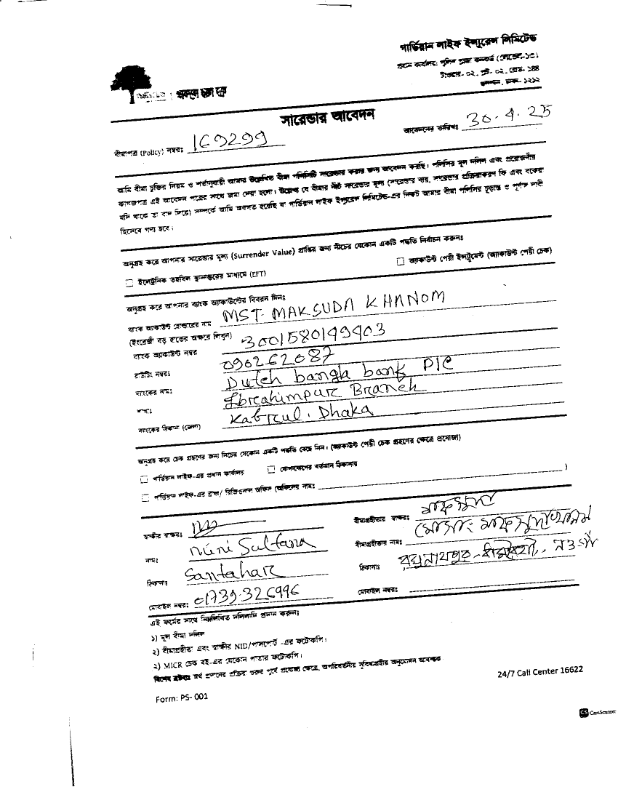 গার্ডিয়ান লাইফ ইন্স্যুরেন্স লিমিটেড
প্রধান কার্যালয়: পুলিশ প্লাজা কনকর্ড (লেভেল-১৩)
টাওয়ার- ০২, প্লট- ০২, রোড- ১৪৪
গুলশান, ঢাকা- ১২১২
সারেন্ডার আবেদন
বীমাপত্র (Policy) নম্বরঃ 169299
আবেদনের তারিখঃ 30.4.25
আমি বীমা চুক্তির নিয়ম ও শর্তানুযায়ী আমার উল্লেখিত বীমা পলিসিটি সারেন্ডার করার জন্য আবেদন করছি। পলিসির মূল দলিল এবং প্রয়োজনীয়
কাগজপত্র এই আবেদন পত্রের সাথে জমা দেয়া হলো। উল্লেখ্য যে বীমার নীট সারেন্ডার মূল্য (সারেন্ডার ব্যয়, সারেন্ডার প্রক্রিয়াকরণ ফি এবং বকেয়া
যদি থাকে তা বাদ দিয়ে) সম্পর্কে আমি অবগত হয়েছি যা গার্ডিয়ান লাইফ ইন্স্যুরেন্স লিমিটেড-এর নিকট আমার বীমা পলিসির চূড়ান্ত ও পূর্ণাঙ্গ দাবী
হিসেবে গণ্য হবে।
অনুগ্রহ করে আপনার সারেন্ডার মূল্য (Surrender Value) প্রাপ্তির জন্য নীচের যেকোন একটি পদ্ধতি নির্বাচন করুনঃ
ইলেকট্রনিক তহবিল স্থানান্তরের মাধ্যমে (EFT)
অ্যাকাউন্ট পেয়ী ইন্সট্রুমেন্ট (অ্যাকাউন্ট পেয়ী চেক)
অনুগ্রহ করে আপনার ব্যাংক অ্যাকাউন্টের বিবরণ দিনঃ
ব্যাংক অ্যাকাউন্ট হোল্ডারের নাম MST. MAKSUDA KHANOM
(ইংরেজী বড় হাতের অক্ষরে লিখুন)
ব্যাংক অ্যাকাউন্ট নম্বর 3001580149403
রাউটিং নম্বরঃ 090262087
ব্যাংকের নামঃ Dutch bangla bank Plc
শাখাঃ Ibrahimpur Branch
ব্যাংকের ঠিকানা (জেলা) Kafrul. Dhaka
অনুগ্রহ করে চেক গ্রহণের জন্য নিচের যেকোন একটি পদ্ধতি বেছে নিন। (অ্যাকাউন্ট পেয়ী চেক গ্রহণের ক্ষেত্রে প্রযোজ্য)
গার্ডিয়ান লাইফ-এর প্রধান কার্যালয়
যোগাযোগের বর্তমান ঠিকানায়
গার্ডিয়ান লাইফ-এর ব্রাঞ্চ/ রিজিওনাল অফিস (অফিসের নামঃ )
স্বাক্ষীর স্বাক্ষরঃ
বীমাগ্রহীতার স্বাক্ষরঃ মাকসুদা
নামঃ Muni Sultana
বীমাগ্রহীতার নামঃ মোসাঃ মাকসুদা খানম
ঠিকানাঃ Santahar
ঠিকানাঃ রঘুনাথপুর
মোবাইল নম্বরঃ 01739-326996
মোবাইল নম্বরঃ
এই ফর্মের সাথে নিম্নলিখিত দলিলাদি প্রদান করুনঃ
১) মূল বীমা দলিল
২) বীমাগ্রহীতা এবং স্বাক্ষীর NID/পাসপোর্ট -এর ফটোকপি।
৩) MICR চেক বই-এর যেকোন পাতার ফটোকপি।
24/7 Call Center 16622
Form: PS- 001
CS CamScanner